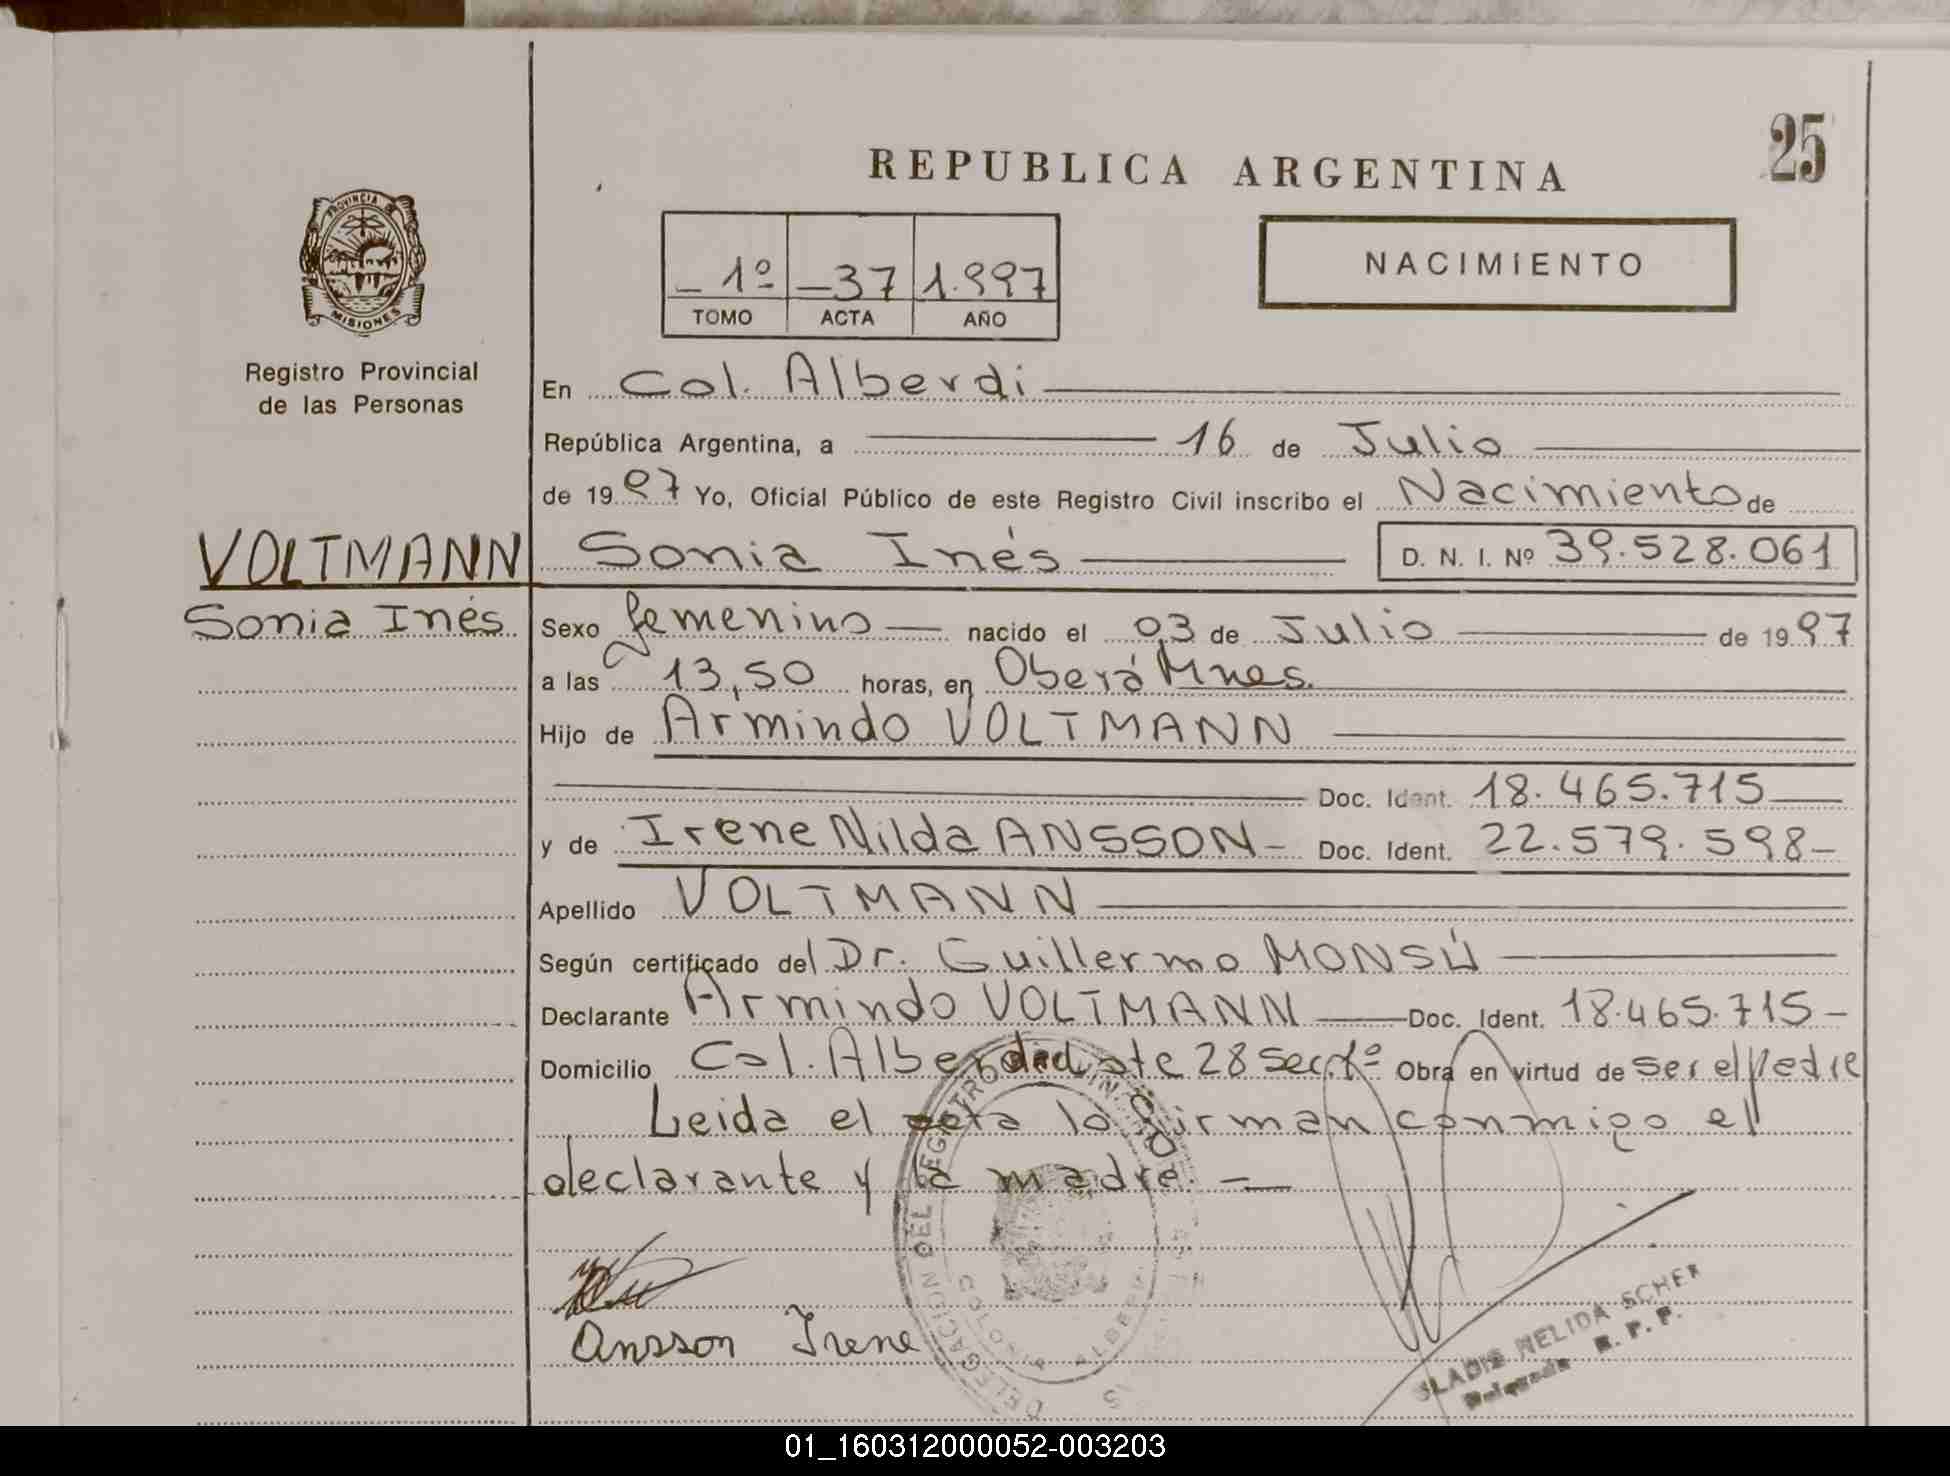 25
REPUBLICA ARGENTINA
PROVINCIA DE
MISIONES
Registro Provincial
de las Personas
1º 37 1.997
TOMO ACTA AÑO
NACIMIENTO
En Col. Alberdi
República Argentina, a 16 de Julio
de 1997 Yo, Oficial Público de este Registro Civil inscribo el Nacimiento de
VOLTMANN Sonia Inés D. N. I. Nº 39.528.061
Sonia Inés Sexo femenino nacido el 03 de Julio de 1997
a las 13,50 horas, en Oberá Mnes.
Hijo de Armindo VOLTMANN
Doc. Ident. 18.465.715
y de Irene Nilda ANSSON Doc. Ident. 22.579.598
Apellido VOLTMANN
Según certificado del Dr. Guillermo MONSÚ
Declarante Armindo VOLTMANN Doc. Ident. 18.465.715
Domicilio Col. Alberdi Lote 28 Sec. 1ª Obra en virtud de ser el Padre
Leida el acta lo firman conmigo el
declarante y la madre.
DELEGACION DEL REGISTRO
COLONIA ALBERDI
Ansson Irene
GLADIS NELIDA SCHER
Delegada R. P. P.
01_160312000052-003203